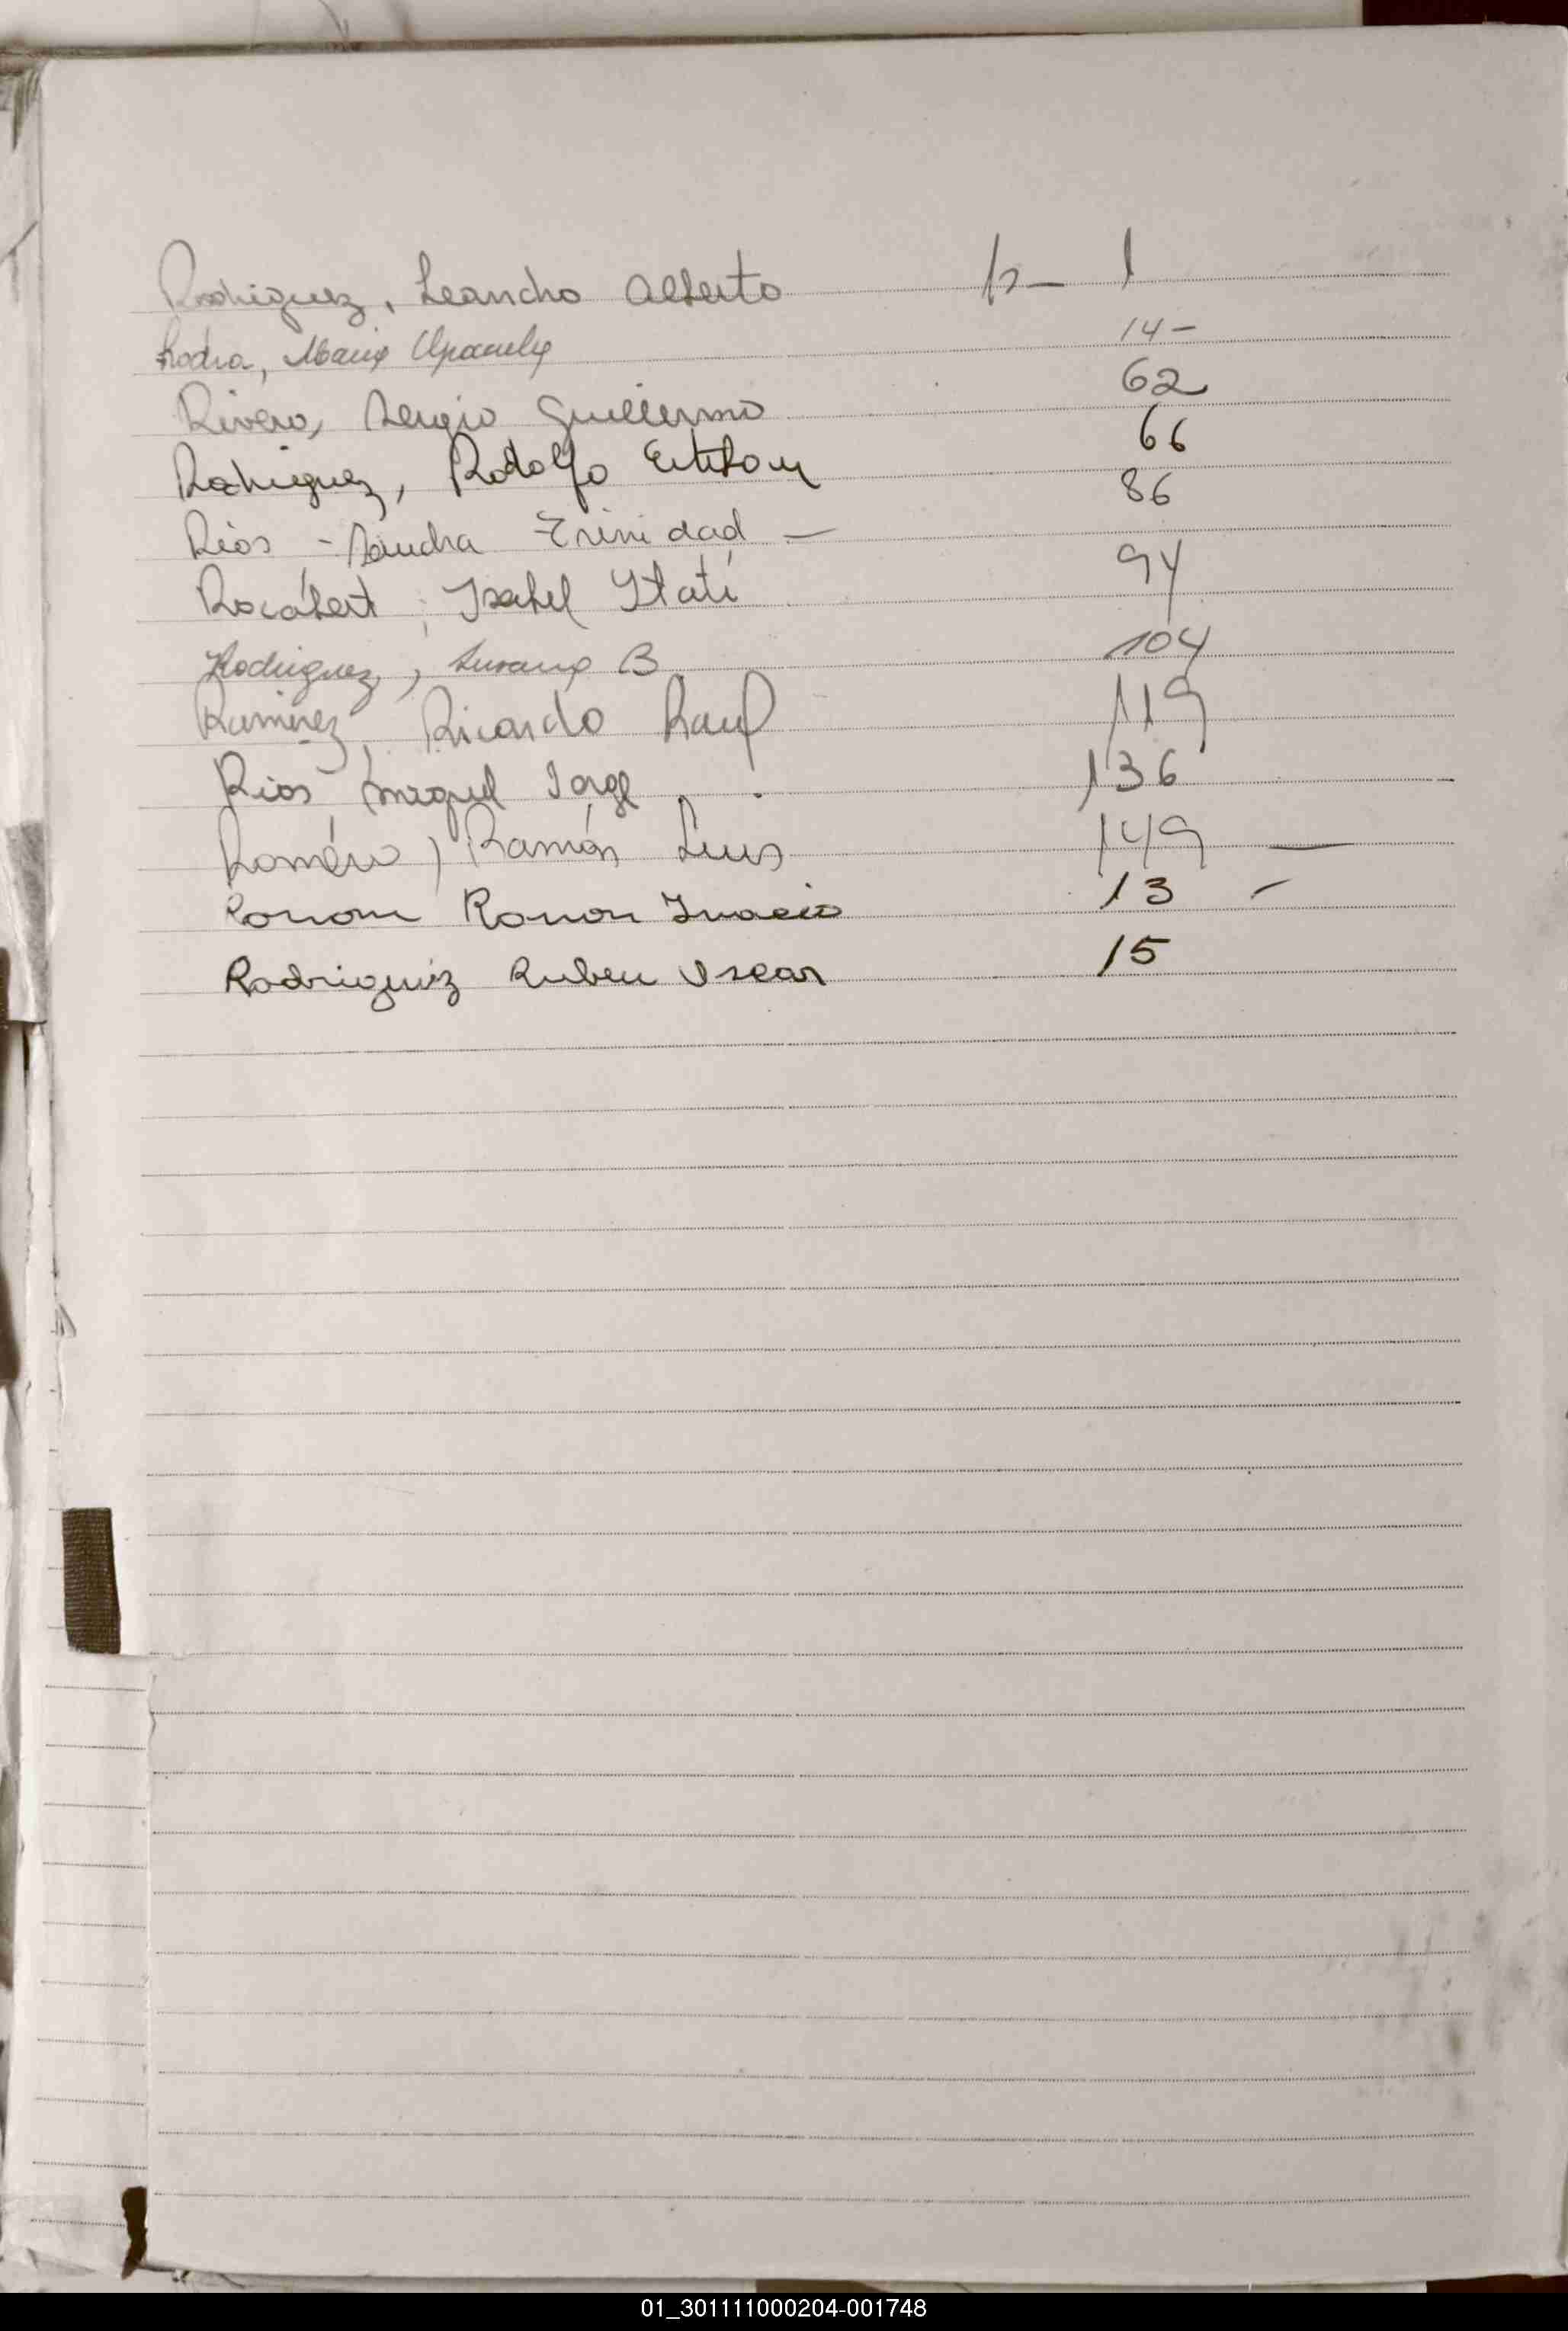 Rodriguez, Leandro Alberto 1
Maria 14-
Rivero, Sergio Guillermo 62
Rodriguez, Rodolfo Esteban 66
Rios - Sandra Trinidad — 86
Rocabert, Isabel Itatí 94
Rodriguez, Susana B 104
Ramirez, Ricardo Raul 119
Rios, Miguel Jorge 136
Roméro, Ramón Luis 149 —
Ramon 13 -
Rodriguiz Ruben Oscar 15
01_301111000204-001748